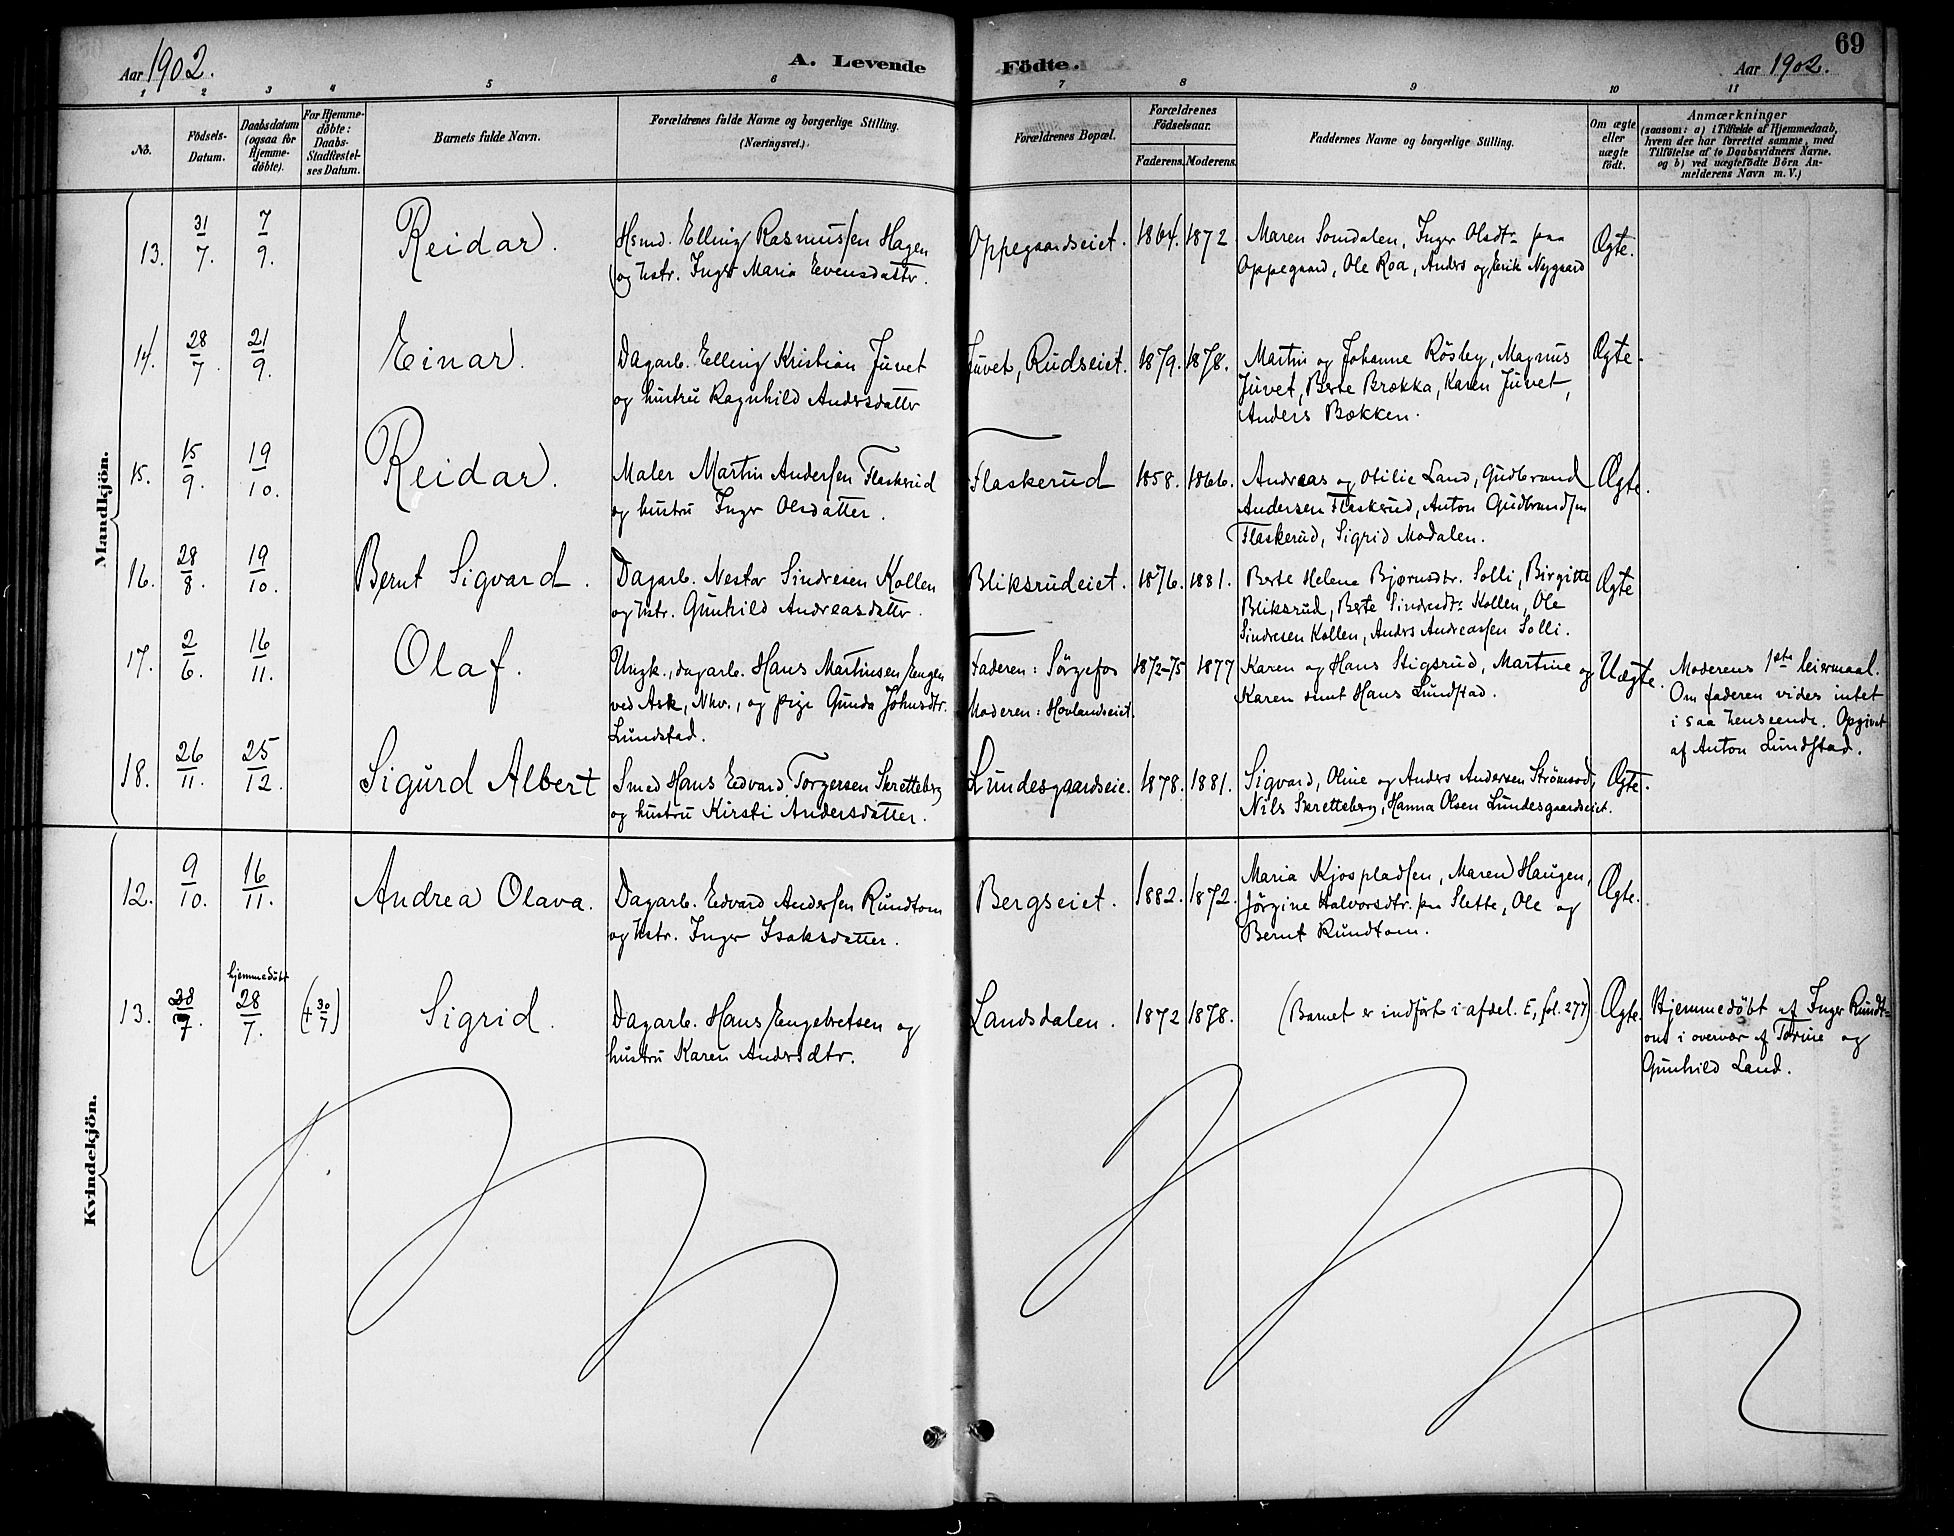 Aar 1902.
A. Levende Födte.
Aar 1902.
69
1 2 3 4 5 6 7 8 9 10 11
No.
Födsels-Datum.
Daabsdatum (ogsaa for Hjemme-döbte).
For Hjemme-döbte: Daabs-Stadfæstel-ses Datum.
Barnets fulde Navn.
Forældrenes fulde Navne og borgerlige Stilling. (Næringsvei.)
Forældrenes Bopæl.
Forældrenes Födselsaar.
Faderens. Moderens.
Faddernes Navne og borgerlige Stilling.
Om ægte eller uægte födt.
Anmærkninger
(saasom: a) i Tilfælde af Hjemmedaab, hvem der har forrettet samme, med Tilföielse af to Daabsvidners Navne, og b) ved uægtefödte Börn Anmelderens Navn m. V.)
Mandkjön.
13. 31/7. 7/9. Reidar. Hsmd. Elling Rasmussen Hagen Oppegaardseiet. 1864. 1872 Maren Somdalen, Inger Olsdtr paa Ægte.
og hstr. Inger Maria Evensdatter. Oppegaard, Ole Roa, Anders og Erik Nygaard
14. 28/7. 21/9. Einar. Dagarb. Elling Kristian Juvet Juvet, Rudseiet. 1879. 1878. Martin og Johanne Rösby, Magnus Ægte.
og hustru Ragnhild Andersdatter Juvet, Berte Brækka, Karen Juvet,
Anders Bækken.
15. 15/9. 19/10. Reidar. Maler Martin Andersen Flaskerud Flaskerud 1858. 1866. Andreas og Otilie Land, Gudbrand Ægte.
og hustru Inger Olsdatter. Andersen Flaskerud, Anton Gudbrandsen
Flaskerud, Sigrid Modalen.
16. 28/8. 19/10. Bernt Sigvard. Dagarb. Nestor Sindresen Kollen Bliksrudeiet. 1876. 1881. Berte Helene Bjørnsdtr. Solli, Birgitte Ægte
og hstr. Gunhild Andreasdatter. Bliksrud, Berte Sindresdtr Kollen, Ole
Sindresen Kollen, Anders Andreassen Solli.
17. 2/6. 16/11. Olaf. Ungk., dagarb. Hans Martinsen Engen Faderen: Sörgefos 1872-75 1877 Karen og Hans Stigsrud, Martine og Uægte. Moderens 1ste leiermaal.
ved Ask, Nkv., og pige Gunda Johnsdtr. Moderen: Hovlandseiet. Karen samt Hans Lundstad. Om faderen vides intet
Lundstad. i saa henseende. Opgivet
af Anton Lundstad.
18. 26/11. 25/12. Sigurd Albert Smed Hans Edvard Torgersen Skretteberg Lundesgaardseie. 1878. 1881. Sigvard, Oline og Anders Andersen Strömsod, Ægte.
og hustru Kirsti Andersdatter. Nils Skretteberg, Hanna Olsen Lundesgaardseiet.
Kvindekjön.
12. 9/10. 16/11. Andrea Olava. Dagarb. Edvard Andersen Rundtom Bergseiet. 1882. 1872. Maria Kjospladsen, Maren Haugen, Ægte.
og hstr. Inger Isaksdatter. Jörgine Halvorsdtr. paa Slette, Ole og
Bernt Rundtom.
13. 28/7. hjemmedöbt 28/7. († 30/7) Sigrid. Dagarb. Hans Engebretsen og Landsdalen. 1872 1878. (Barnet er indfört i afdel. E, fol. 277) Ægte. Hjemmedöbt af Inger Rundt-
hustru Karen Andersdtr. om i overvær af Torine og
Gunhild Land.